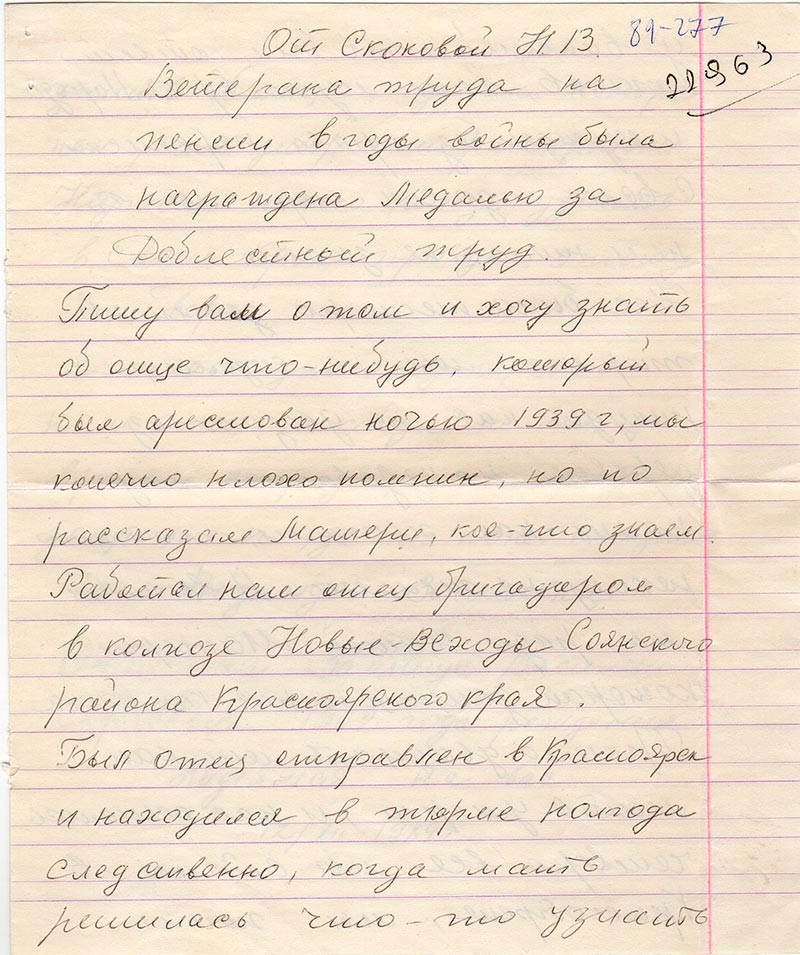 От Скоковой Н В. 89-277
22963
Ветерана труда на
пенсии в годы войны была
награждена Медалью за
Доблестный труд.
Пишу вам о том и хочу знать
об отце что-нибудь, который
был арестован ночью 1939 г, мы
конечно плохо помним, но по
рассказам Матери, кое-что знаем.
Работал наш отец бригадаром
в колхозе Новые-Всходы Соянского
района Красноярского края.
Был отец отправлен в Красноярск
и находился в тюрме полгода
следственно, когда мать
решилась что-то узнать